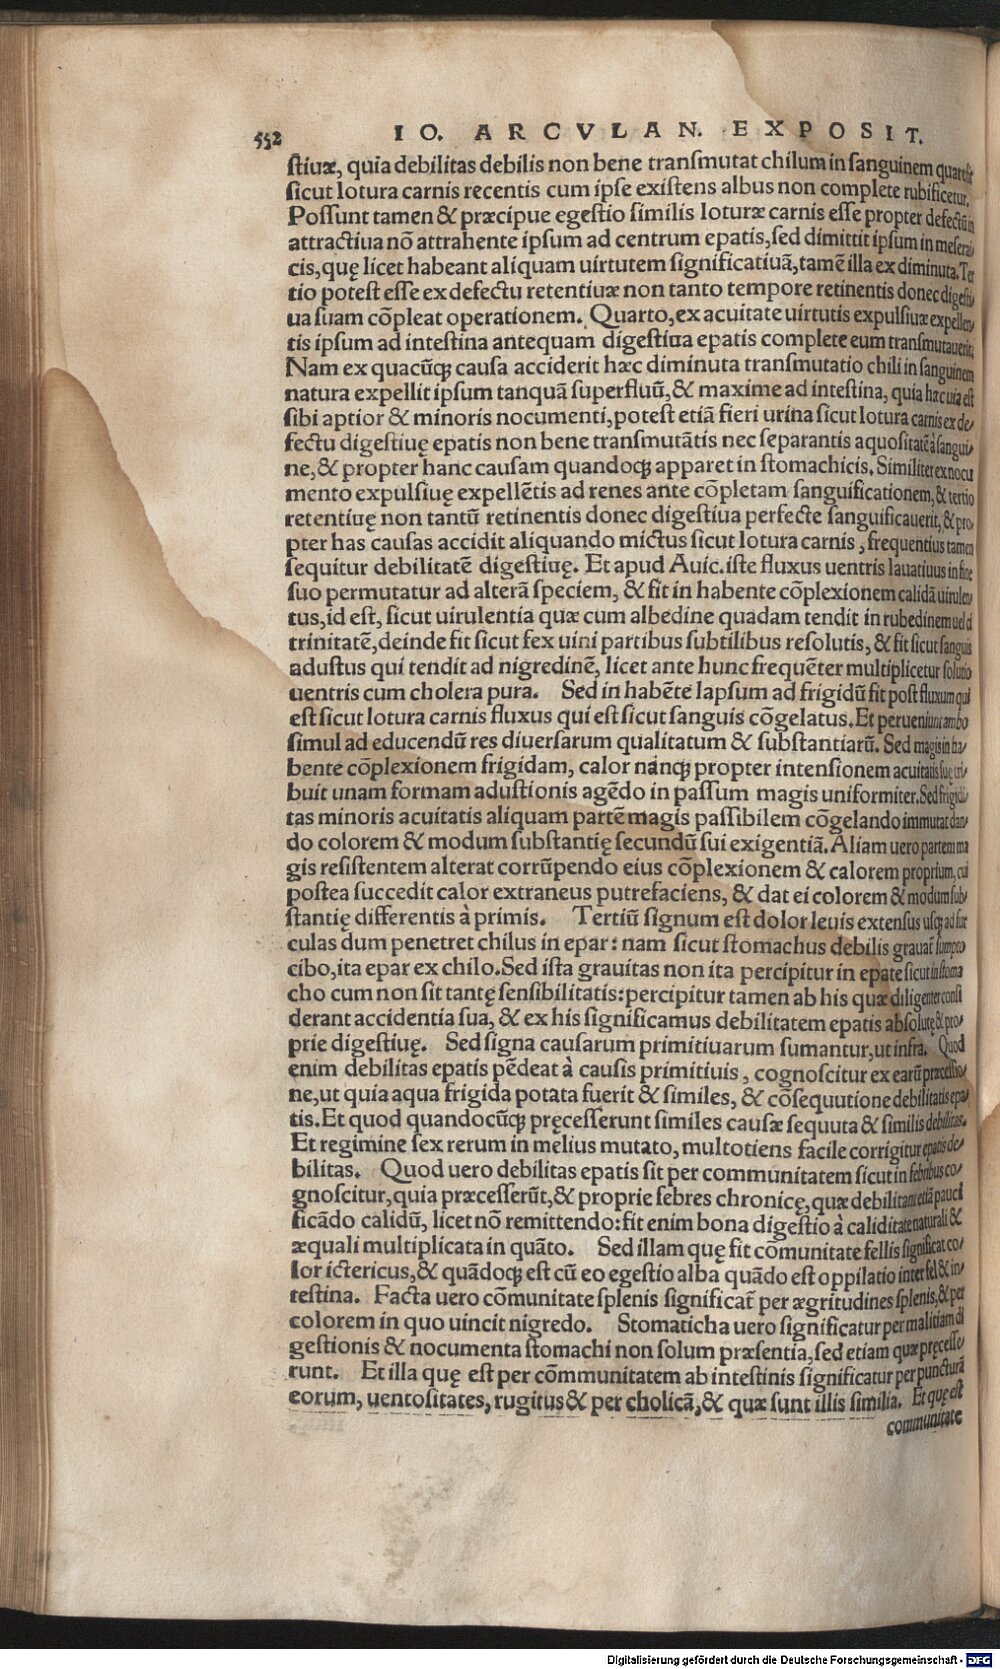 552 IO. ARCVLAN. EXPOSIT.
ſtiuæ, quia debilitas debilis non bene tranſmutat chilum in ſanguinem quare eſt
ſicut lotura carnis recentis cum ipſe exiſtens albus non complete rubificetur.
Poſſunt tamen & præcipue egeſtio ſimilis loturæ carnis eſſe propter defectū in
attractiua nō attrahente ipſum ad centrum epatis, ſed dimittit ipſum in meſerai⸗
cis, quę licet habeant aliquam uirtutem ſignificatiuā, tamē illa ex diminuta. Ter
tio poteſt eſſe ex defectu retentiuæ non tanto tempore retinentis donec digeſti⸗
ua ſuam cōpleat operationem. Quarto, ex acuitate uirtutis expulſiuæ expellen⸗
tis ipſum ad inteſtina antequam digeſtiua epatis complete eum tranſmutauerit.
Nam ex quacūq; cauſa acciderit hæc diminuta tranſmutatio chili in ſanguinem
natura expellit ipſum tanquā ſuperfluū, & maxime ad inteſtina, quia hæc uia eſt
ſibi aptior & minoris nocumenti, poteſt etiā fieri urina ſicut lotura carnis ex de⸗
fectu digeſtiuę epatis non bene tranſmutātis nec ſeparantis aquoſitatē à ſangui⸗
ne, & propter hanc cauſam quandoq; apparet in ſtomachicis. Similiter ex nocu
mento expulſiuę expellētis ad renes ante cōpletam ſanguificationem, & tertio
retentiuę non tantū retinentis donec digeſtiua perfecte ſanguificauerit, & pro⸗
pter has cauſas accidit aliquando mictus ſicut lotura carnis, frequentius tamen
ſequitur debilitatē digeſtiuę. Et apud Auic. iſte fluxus uentris lauatiuus in fine
ſuo permutatur ad alterā ſpeciem, & fit in habente cōplexionem calidā uirulen⸗
tus, id eſt, ſicut uirulentia quæ cum albedine quadam tendit in rubedinem uel ci
trinitatē, deinde fit ſicut fex uini partibus ſubtilibus reſolutis, & fit ſicut ſanguis
aduſtus qui tendit ad nigredinē, licet ante hunc frequēter multiplicetur ſolutio
uentris cum cholera pura. Sed in habēte lapſum ad frigidū fit poſt fluxum qui
eſt ſicut lotura carnis fluxus qui eſt ſicut ſanguis cōgelatus. Et perueniunt ambo
ſimul ad educendū res diuerſarum qualitatum & ſubſtantiarū. Sed magis in ha⸗
bente cōplexionem frigidam, calor nanq; propter intenſionem acuitatis ſuę tri⸗
buit unam formam aduſtionis agēdo in paſſum magis uniformiter. Sed frigidi⸗
tas minoris acuitatis aliquam partē magis paſſibilem cōgelando immutat dan⸗
do colorem & modum ſubſtantię ſecundū ſui exigentiā. Aliam uero partem ma
gis reſiſtentem alterat corrūpendo eius cōplexionem & calorem proprium, cui
poſtea ſuccedit calor extraneus putrefaciens, & dat ei colorem & modum ſub⸗
ſtantię differentis à primis. Tertiū ſignum eſt dolor leuis extenſus uſq; ad fur
culas dum penetret chilus in epar: nam ſicut ſtomachus debilis grauat̄ ſumpto
cibo, ita epar ex chilo. Sed iſta grauitas non ita percipitur in epate ſicut in ſtoma
cho cum non ſit tantę ſenſibilitatis: percipitur tamen ab his quæ diligenter conſi
derant accidentia ſua, & ex his ſignificamus debilitatem epatis abſolutę & pro⸗
prie digeſtiuę. Sed ſigna cauſarum primitiuarum ſumantur, ut infra. Quod
enim debilitas epatis pēdeat à cauſis primitiuis, cognoſcitur ex earū præceſſio⸗
ne, ut quia aqua frigida potata fuerit & ſimiles, & cōſequutione debilitatis epa⸗
tis. Et quod quandocūq; pręceſſerunt ſimiles cauſæ ſequuta & ſimilis debilitas.
Et regimine ſex rerum in melius mutato, multotiens facile corrigitur epatis de⸗
bilitas. Quod uero debilitas epatis ſit per communitatem ſicut in febribus co⸗
gnoſcitur, quia præceſſerūt, & proprie febres chronicę, quæ debilitant etiā pauci
ficādo calidū, licet nō remittendo: fit enim bona digeſtio à caliditate naturali &
æquali multiplicata in quāto. Sed illam quę fit cōmunitate fellis ſignificat co⸗
lor ictericus, & quādoq; eſt cū eo egeſtio alba quādo eſt oppilatio inter fel & in⸗
teſtina. Facta uero cōmunitate ſplenis ſignificat̄ per ægritudines ſplenis, & per
colorem in quo uincit nigredo. Stomaticha uero ſignificatur per malitiam di
geſtionis & nocumenta ſtomachi non ſolum præſentia, ſed etiam quæ pręceſſe⸗
runt. Et illa quę eſt per cōmunitatem ab inteſtinis ſignificatur per puncturā
eorum, uentoſitates, rugitus & per cholicā, & quæ ſunt illis ſimilia. Et quę eſt
communitate
Digitalisierung gefördert durch die Deutsche Forschungsgemeinschaft - DFG